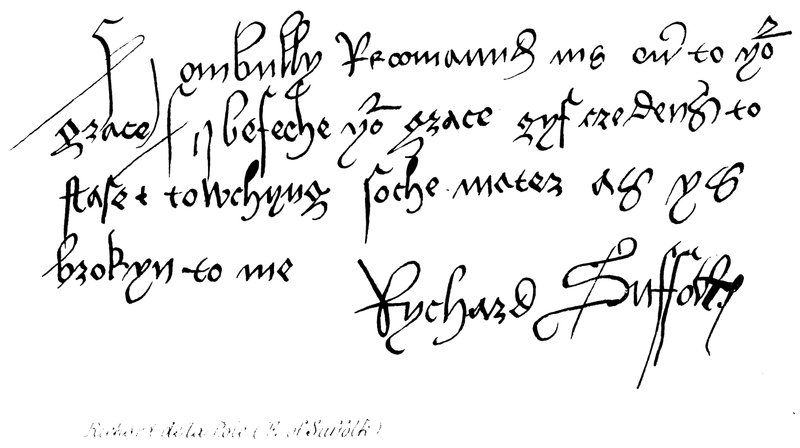 I ombully Recomannd me ou͞ to yor
grace I besech yor grace gyf credens to
stase & towchyng soche mater as ys
brokyn to me
Rychard Suffolk
Richard de la Pole (E. of Suffolk)